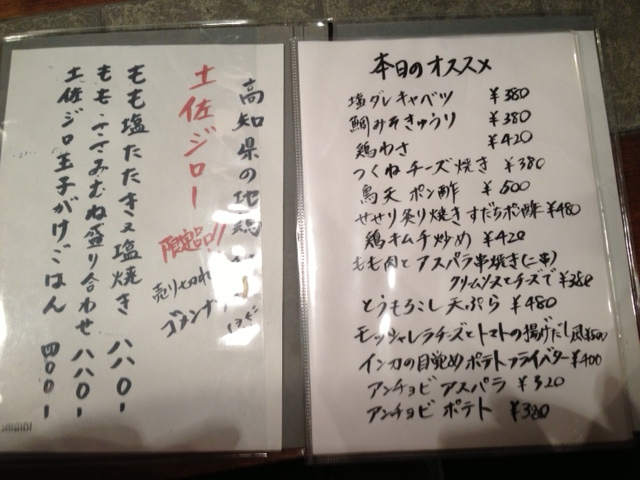 高知県の地鶏
土佐ジロー
限定品!!
売り切れ
ゴメンナ
もも塩たたき又塩焼き 八八〇-
もも・ささみむね盛り合わせ 八八〇-
土佐ジロ玉子がけごはん 四〇〇-
本日のオススメ
塩ダレキャベツ ¥380
鯛みそきゅうり ¥380
鶏わさ ¥420
つくねチーズ焼き ¥380
鳥天ポン酢 ¥500
せせり炙り焼きすだちポン酢 ¥480
鶏キムチ炒め ¥420
もも肉とアスパラ串焼き(二串)
クリームソースとチーズで ¥380
とうもろこし天ぷら ¥480
モッツャレラチーズとトマトの揚げだし風 ¥500
インカの目覚めポテトフライバター ¥400
アンチョビアスパラ ¥320
アンチョビポテト ¥380